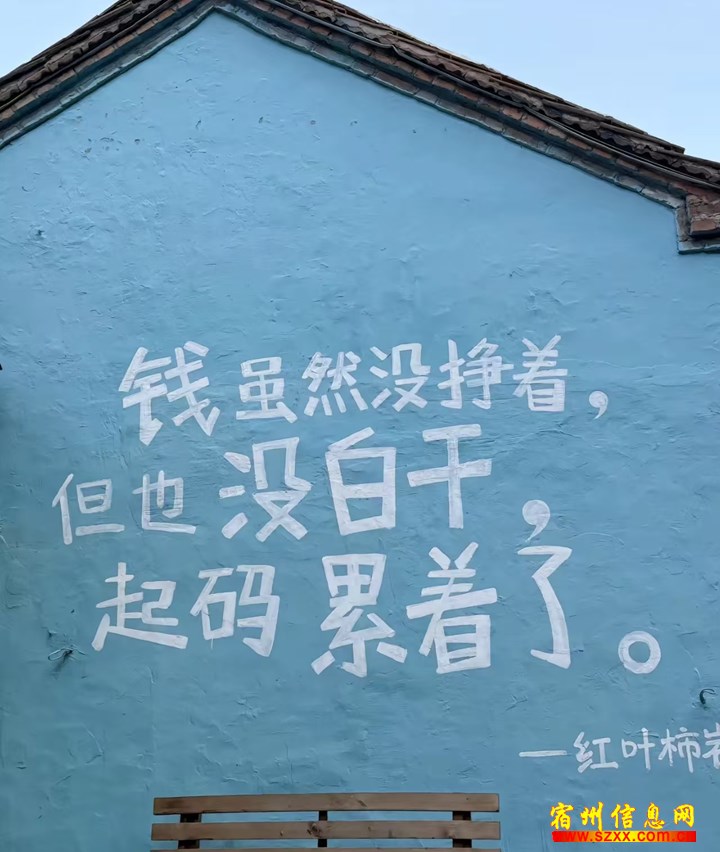 钱虽然没挣着，
但也没白干，
起码累着了。
—红叶柿岩
宿州信息网
www.szxx.com.cn